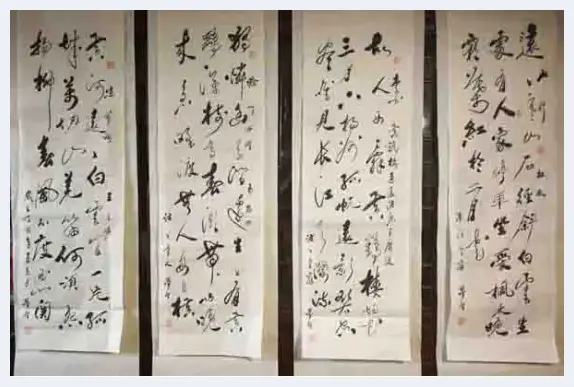 遠上寒山石徑斜白雲生
處有人家停車坐愛楓林晚
霜葉紅於二月花
故人西辭黃鶴樓烟花
三月下揚州孤帆遠影碧空
盡唯見長江天際流
獨憐幽草澗邊生上有黃
鸝深樹鳴春潮帶雨晚
來急野渡無人舟自橫
黃河遠上白雲間一片孤
城萬仞山羌笛何須怨
楊柳春風不度玉門關